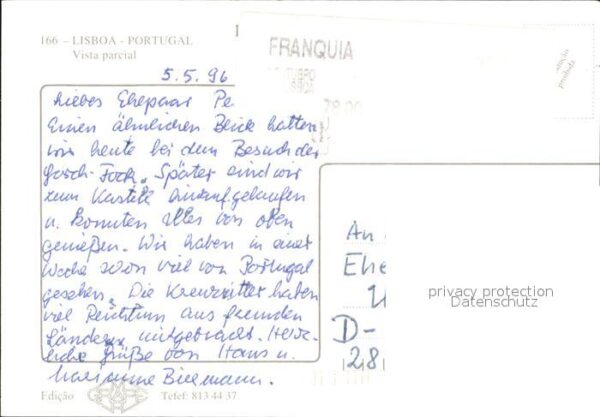 166 – LISBOA - PORTUGAL
Vista parcial
FRANQUIA
5.5.96
Liebes Ehepaar Pe
Einen ähnlichen Blick hatten
wir heute bei dem Besuch der
Fock. Später sind wir
zum Kastell hinaufgelaufen
u. konnten alles von oben
genießen. Wir haben in einer
Woche schon viel von Portugal
gesehen. Die Kreuzritter haben
viel Reichtum aus fremden
Ländern mitgebracht. Herz-
liche Grüße von Hans u.
Marianne
An
Ehe
D-
28
privacy protection
Datenschutz
Edição
Telef: 813 44 37